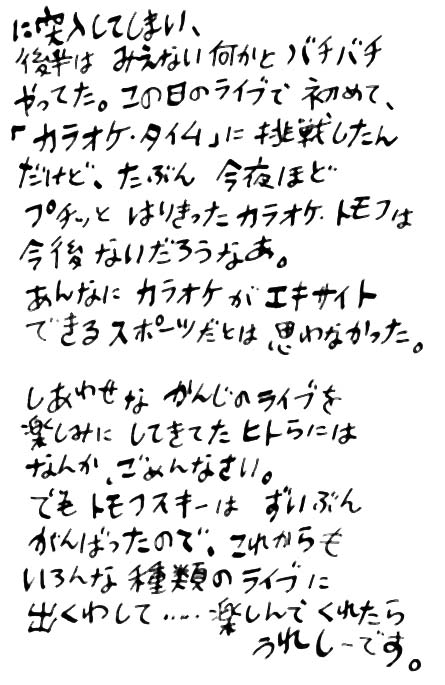 に突入してしまい、
後半は みえない何かと バチバチ
やってた。この日のライブで 初めて、
「カラオケ・タイム」に挑戦したん
だけど、たぶん 今夜ほど
プチッと はりきったカラオケ・トモフは
今後 ないだろうなあ。
あんなに カラオケが エキサイト
できるスポーツだとは 思わなかった。
しあわせな かんじのライブを
楽しみに してきてた ヒトらには
なんか、ごめんなさい。
でも トモフスキーは ずいぶん
がんばったので、これからも
いろんな 種類のライブに
出くわして・・・・・楽しんで くれたら
うれしーです。